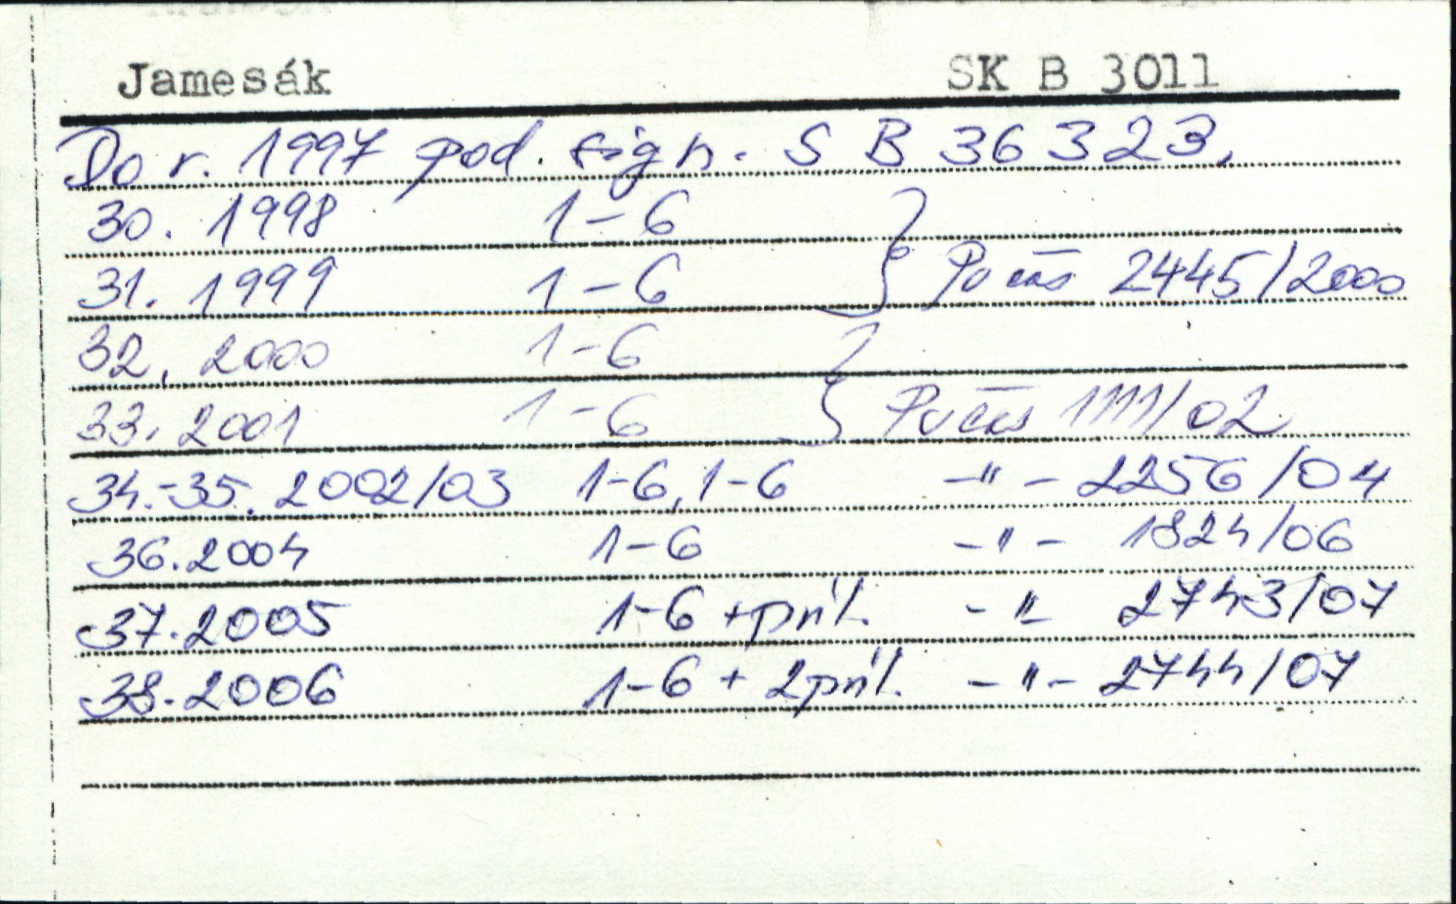 Jamesák SK B 3011
Do r. 1997 pod. sign. S B 36 323.
30. 1998 1-6
31. 1999 1-6 } Po čas 2445/2000
32. 2000 1-6
33. 2001 1-6 } Po čas 1111/02
34.-35. 2002/03 1-6, 1-6 -"- 2256/04
36. 2004 1-6 -"- 1824/06
37. 2005 1-6 + príl. -"- 2743/07
38. 2006 1-6 + 2 príl. -"- 2744/07